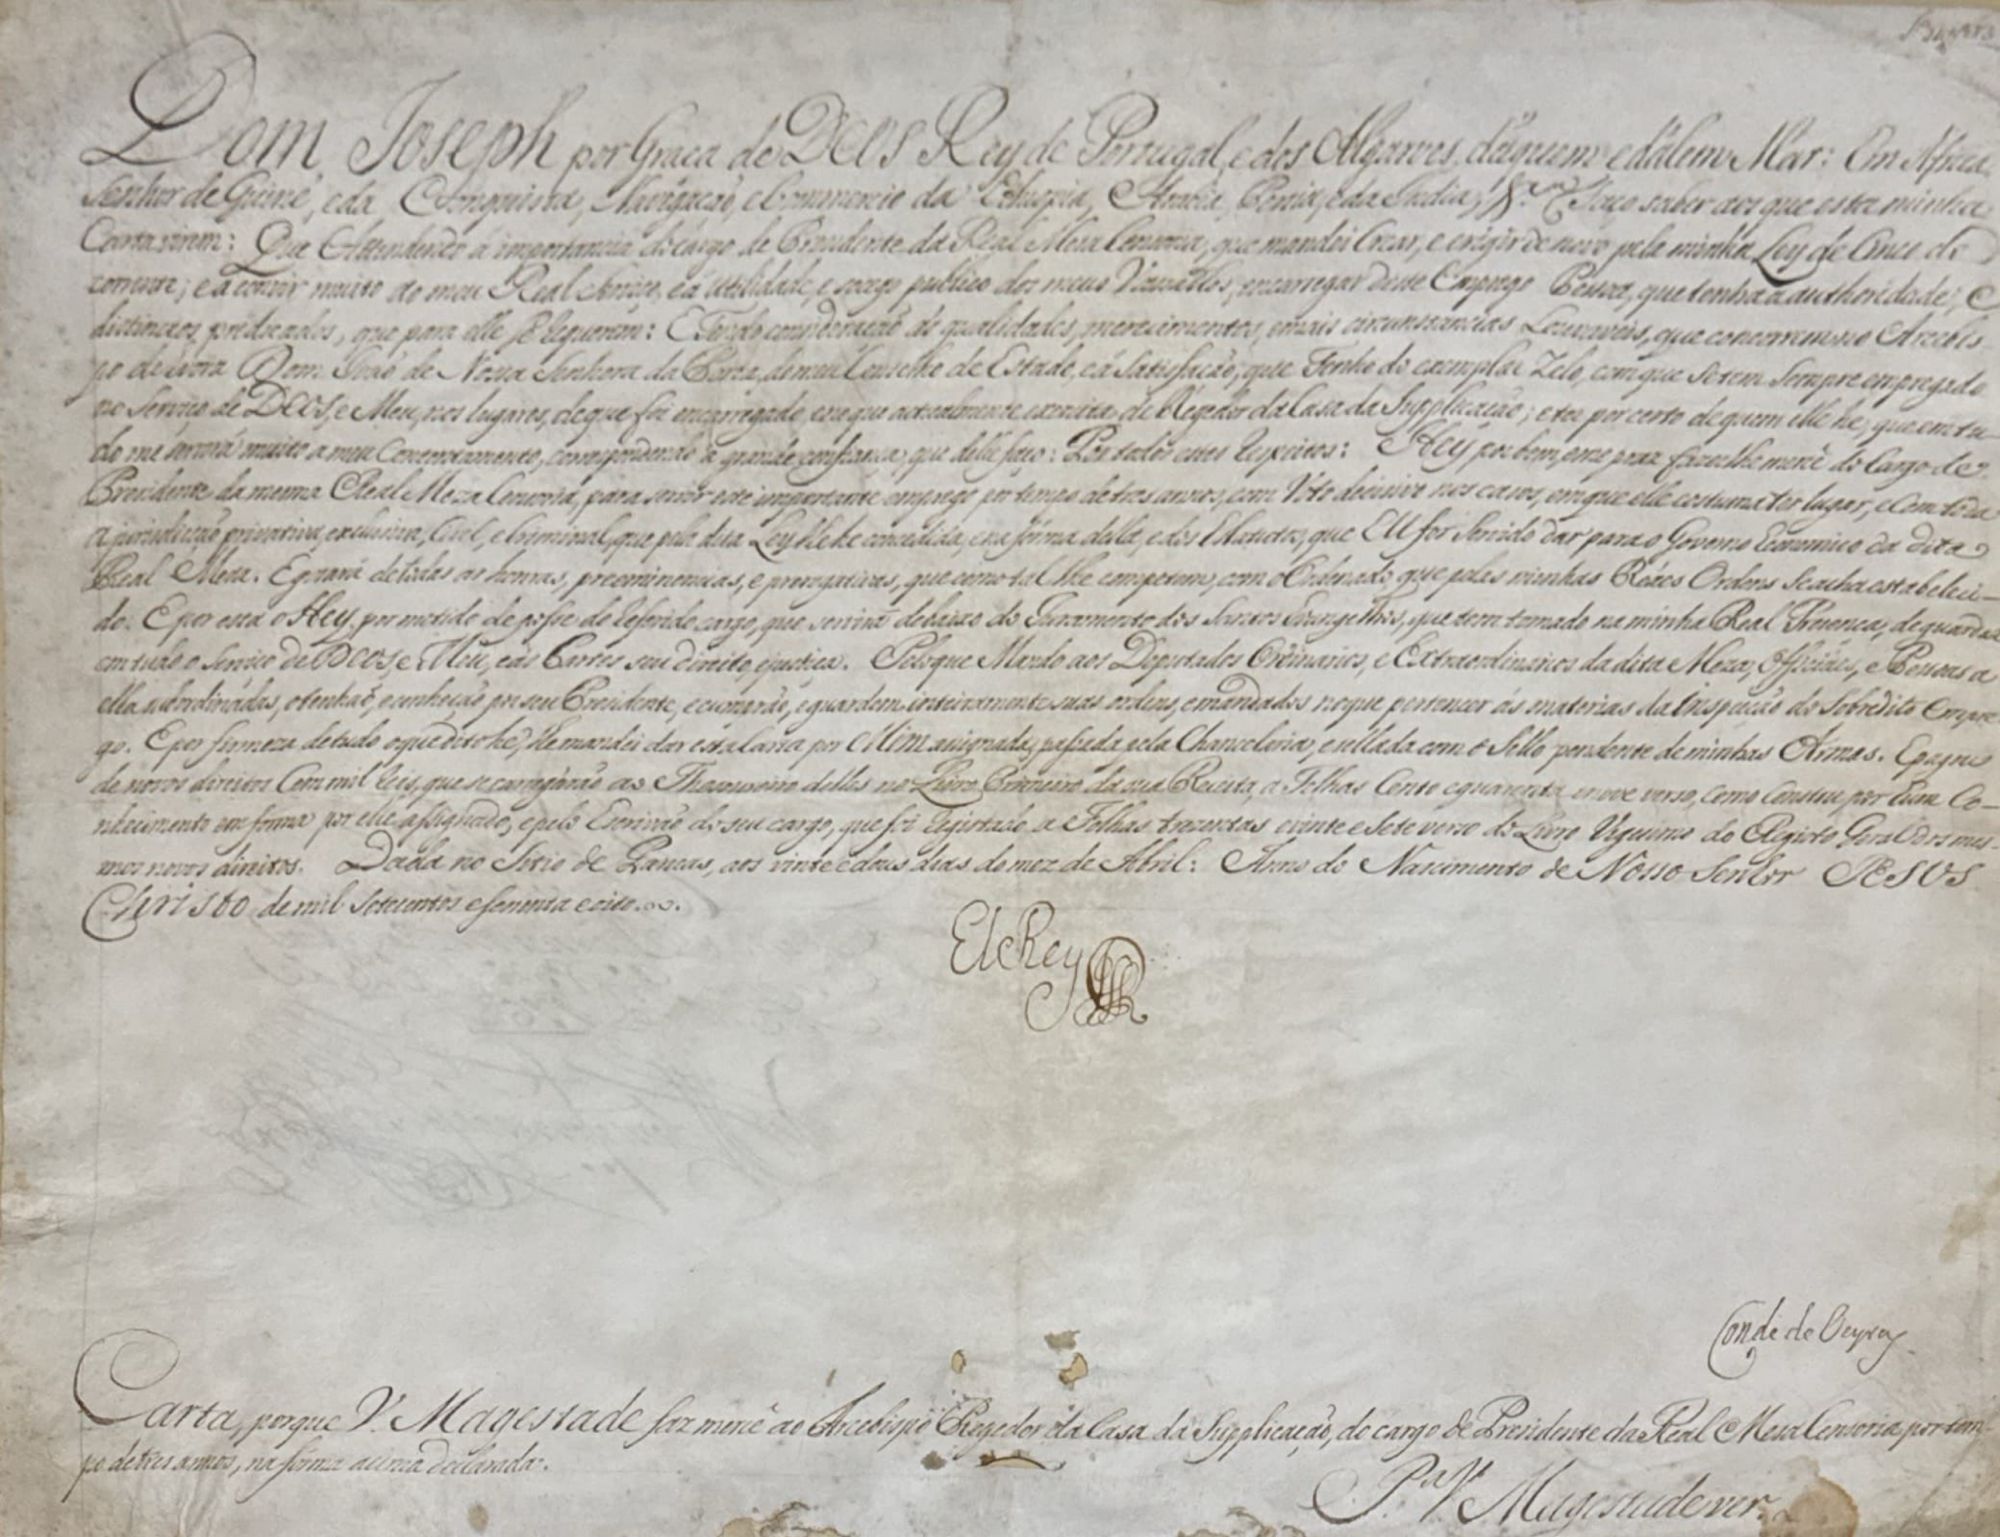 Dom Joseph por Graça de DEUS Rey de Portugal, e dos Algarves, dáquem e dálem Mar: Em Africa
Senhor de Guiné, e da Conquista, Navegação, e Commercio da Ethiopia, Arabia, Persia, e da India, &.ª Faço saber aos que esta minha
Carta virem: Que Attendendo á importancia do cargo de Presidente da Real Meza Censoria, que mandei Crear, e erigir de novo pela minha Ley de Cinco do
corrente; e a convir muito ao meu Real Serviço, e á utilidade, e socego publico dos meus Vassallos, encarregar desse Emprego Pessoa, que tenha a authoridade, e
distinctos predicados, que para elle se requerem: E Tendo consideração ás qualidades, merecimentos, e mais circunstancias Louvaveis, que concorrem no Arcebis-
po de Evora Dom João de Nossa Senhora da Porta, do meu Conselho de Estado, e á Satisfação, que Tenho do exemplar Zelo, com que se tem sempre empregado
no Serviço de DEOS, e Meu, nos lugares, de que foi encarregado, e no que actualmente exercita de Regedor da Casa da Supplicação; e ter por certo de quem elle he, que em tu-
do me servirá muito a meu Contentamento, correspondendo á grande confiança, que delle faço: Por todos estes respeitos: Hey por bem, e me praz fazerlhe mercê do Cargo de
Presidente da mesma Real Meza Censoria, para servir este importante emprego por tempo de tres annos, com Voto decisivo nos casos, em que elle costuma ter lugar, e Com toda
a jurisdicção privativa, exclusiva, Civel, e Criminal, que pela dita Ley lhe he concedida, e na fórma della, e dos Estatutos, que EU for Servido dar para o Governo Economico da dita
Real Meza. E gozará de todas as honras, preeminencias, e prerogativas, que como tal lhe competem, com o Ordenado, que pelas minhas Reaes Ordens Se acha estabeleci-
do. E por esta o Hey por metido de posse do referido cargo, que servirá debaixo do Juramento dos Santos Evangelhos, que tem tomado na minha Real Presença, de guardar
em tudo o Serviço de DEOS, e Meu, e ás Partes seu direito, e justiça. Pelo que Mando aos Deputados Ordinarios, e Extraordinarios da dita Meza, Officiaes, e Pessoas a
ella subordinadas, o tenhaõ, e conheçaõ por seu Presidente, e cumpraõ, e guardem inteiramente suas ordens, e mandados no que pertencer ás materias da Inspecção do Sobredito Empre-
go. E por firmeza de tudo o que dito he, lhe mandei dar esta Carta por Mim assignada, passada pela Chancelaria, e sellada com o Sello pendente de minhas Armas. E pagou
de novos direitos Cem mil reis, que se carregáraõ ao Thesoureiro delles no Livro Primeiro da sua Receita, a Folhas Cento e quarenta e nove verso, como Constou por hum Co-
nhecimento em forma por elle assignado, e pelo Escrivaõ do seu cargo, que foi registado a Folhas trezentas e vinte e sete verso do Livro Vigesimo do Registo Geral dos mes-
mos novos direitos. Dada no Sitio de Pancas, aos vinte e dous dias do mez de Abril: Anno do Nascimento de Nosso Senhor JESUS
Christo de mil setecentos e sessenta e oito.
ElRey
Conde de Oeyras
Carta, porque V. Magestade faz mercê ao Arcebispo Regedor da Casa da Supplicação, do cargo de Presidente da Real Meza Censoria por tem-
po de tres annos, na fórma acima declarada.
P.ª V. Magestade ver.